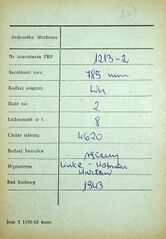 Jednostka służbowa
Nr inwentarza PKP 1213-2
Szerokość toru 785 mm
Rodzaj wagonu
Ilość osi 2
Ładowność w t. 8
Ciężar własny 4620
Rodzaj hamulca ręczny
Wytwórnia Linke - Hofman
Rok budowy 1943